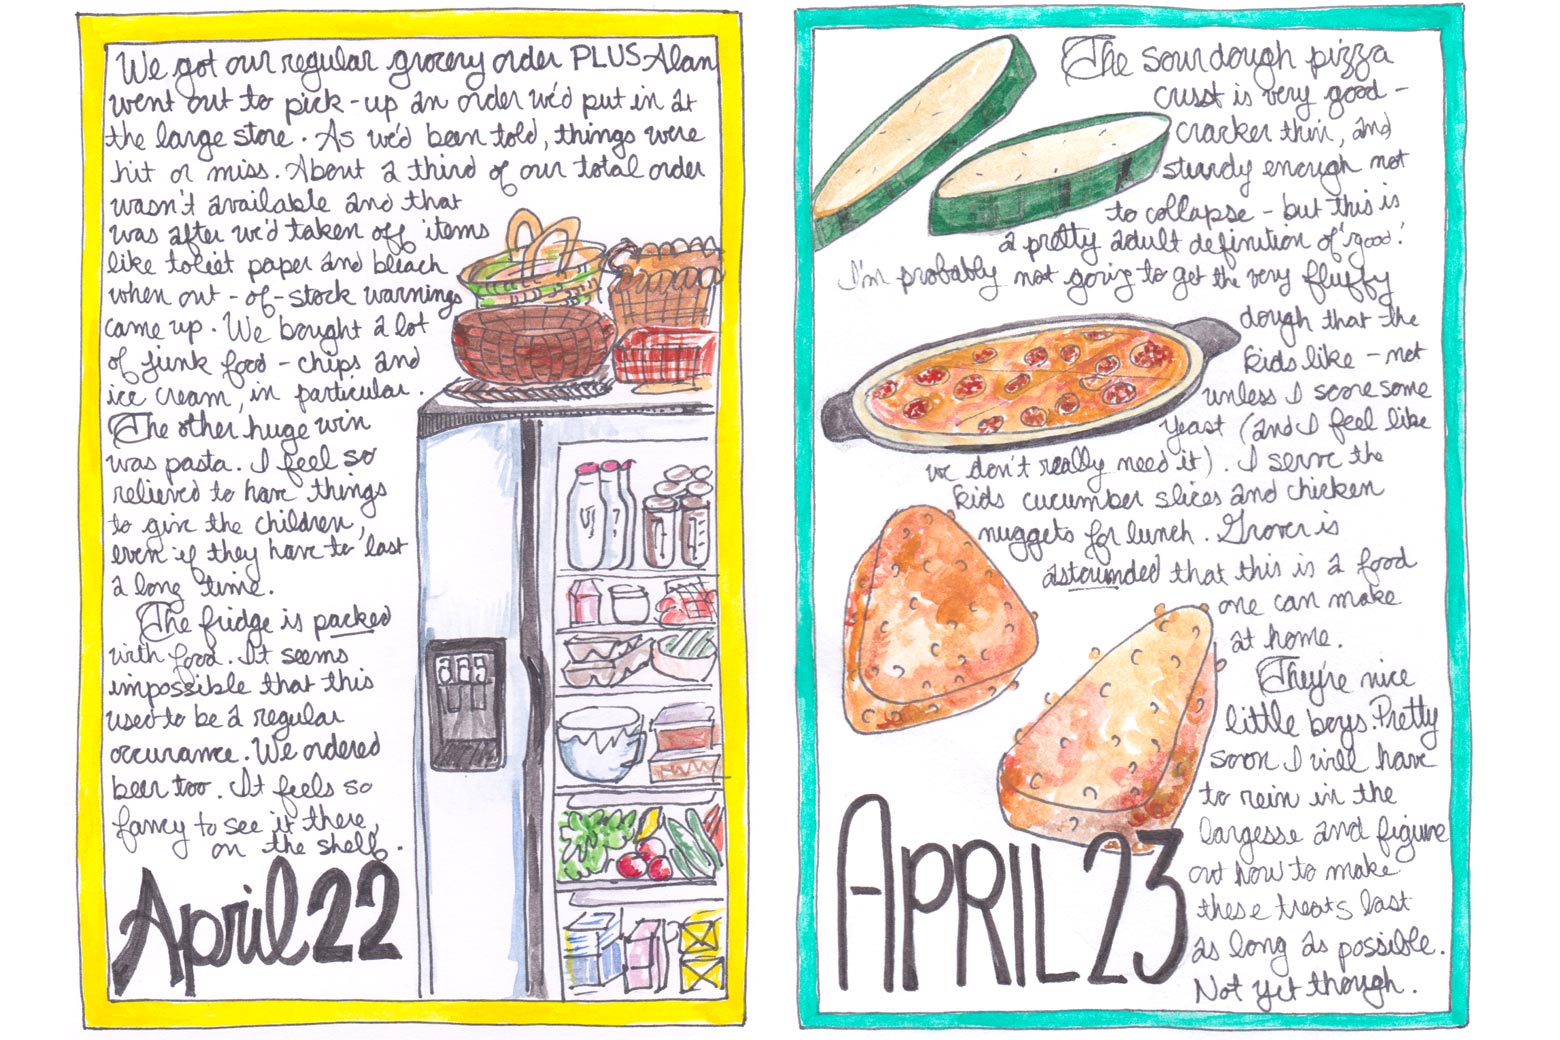 We got our regular grocery order PLUS Alan
went out to pick-up an order we'd put in at
the large store. As we'd been told, things were
hit or miss. About a third of our total order
wasn't available and that
was after we'd taken off items
like toliet paper and bleach
when out-of-stock warnings
came up. We bought a lot
of junk food - chips and
ice cream, in particular.
The other huge win
was pasta. I feel so
relieved to have things
to give the children,
even if they have to last
a long time.
The fridge is packed
with food. It seems
impossible that this
used to be a regular
occurance. We ordered
beer too. It feels so
fancy to see it there,
on the shelf.
April 22
The sourdough pizza
crust is very good -
cracker thin, and
sturdy enough not
to collapse - but this is
a pretty adult definition of 'good.'
I'm probably not going to get the very fluffy
dough that the
kids like - not
unless I score some
yeast (and I feel like
we don't really need it). I serve the
kids cucumber slices and chicken
nuggets for lunch. Grover is
astounded that this is a food
one can make
at home.
They're nice
little boys. Pretty
soon I will have
to rein in the
largesse and figure
out how to make
these treats last
as long as possible.
Not yet though.
APRIL 23